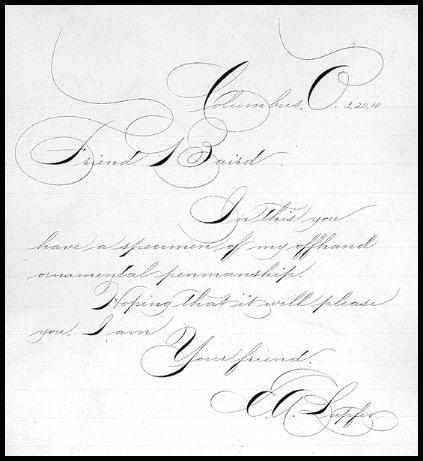 Columbus, O. 3,20,10
Friend Baird:
In this you
have a specimen of my offhand
ornamental penmanship.
Hoping that it will please
you. I am
Your friend.
E. A. Lupfer